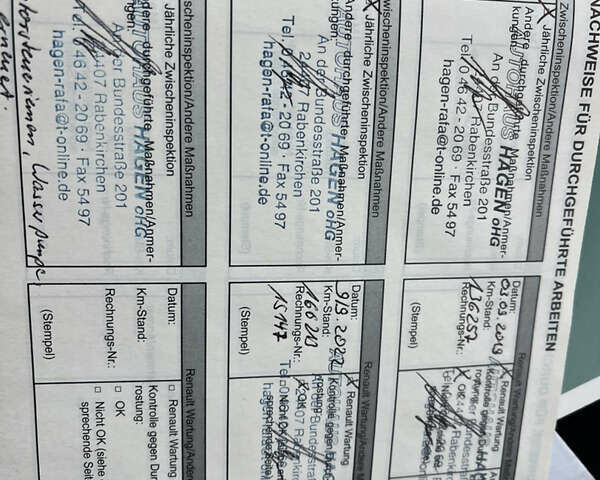 NACHWEISE FÜR DURCHGEFÜHRTE ARBEITEN
Zwischeninspektion/Andere Maßnahmen
X Jährliche Zwischeninspektion
Andere durchgeführte Maßnahmen/Anmer-
kungen:
AUTOHAUS HAGEN oHG
An der Bundesstraße 201
Rabenkirchen
Tel. 0 46 42 - 20 69 · Fax 54 97
hagen-rafa@t-online.de
Datum:
03.09.2019
Km-Stand:
136257
Rechnungs-Nr.:
(Stempel)
X Renault Wartung
Kontrolle gegen
rostung:
X OK
Zwischeninspektion/Andere Maßnahmen
X Jährliche Zwischeninspektion
Andere durchgeführte Maßnahmen/Anmer-
kungen:
AUTOHAUS HAGEN oHG
An der Bundesstraße 201
Rabenkirchen
Tel. 0 46 42 - 20 69 · Fax 54 97
hagen-rafa@t-online.de
Datum:
Km-Stand:
166213
Rechnungs-Nr.:
15147
(Stempel)
Renault Wartung/Andere
X Renault Wartung
Kontrolle gegen
rostung:
X OK
Zwischeninspektion/Andere Maßnahmen
Jährliche Zwischeninspektion
Andere durchgeführte Maßnahmen/Anmer-
kungen:
AUTOHAUS HAGEN oHG
An der Bundesstraße 201
24407 Rabenkirchen
Tel. 0 46 42 - 20 69 · Fax 54 97
hagen-rafa@t-online.de
Wasserpumpe,
Datum:
Km-Stand:
Rechnungs-Nr.:
(Stempel)
Renault Wartung/Andere
□ Renault Wartung
Kontrolle gegen Dur
rostung:
□ OK
□ Nicht OK (siehe
sprechende Seit